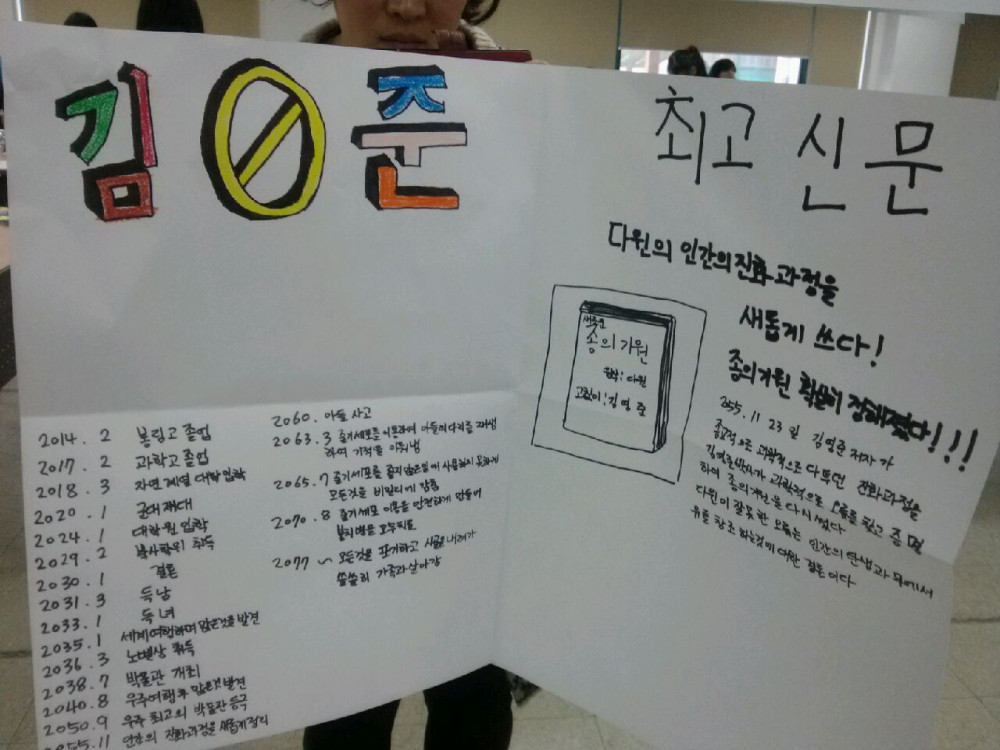 김영준
2014. 2 봉림고 졸업
2017. 2 과학고 졸업
2018. 3 자연계열 대학 입학
2020. 1 군대 제대
2024. 1 대학원 입학
2029. 2 박사학위 취득
2030. 1 결혼
2031. 3 득남
2033. 1 득녀
2035. 1 세계여행하며 많은것을 발견
2036. 3 노벨상 취득
2038. 7 박물관 개최
2040. 8 우주여행 후 많은것 발견
2050. 9 우주 최고의 박물관 등극
2055. 11 인간의 진화과정을 새롭게 정리
2060. 아들 사고
2063. 3 줄기세포를 이용하여 아들의 다리를 재생
하여 기적을 이뤄냄
2065. 7 줄기세포를 좋지않은일에 사용하지 못하게
모든것을 비밀리에 감춤
2070. 8 줄기세포 이용을 안전하게 만들어
불치병을 모두치료
2077 ~ 모든것을 포기하고 시골로 내려가
쓸쓸히 가족과살아감
최고 신문
다윈의 인간의진화과정을
새롭게 쓰다!
종의기원 확실히 정해졌다!!!
새로운
종의 기원
원작: 다윈
고친이: 김영준
2055. 11 23일 김영준 저자가
종교적으로 과학적으로 다투던 진화과정을
김영준박사가 과학적으로 오류를 찾고 증명
하여 종의기원을 다시 썼다
다윈이 잘못한 오류는 인간의 탄생과 무에서
유를 창조 하는것에 대한 결론이다